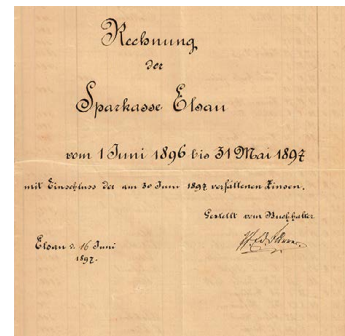 Rechnung
der
Sparkasse Elsau
vom 1 Juni 1896 bis 31 Mai 1897
mit Einschluss der am 30 Juni 1897 verfallenen Zinsen.
Gestellt vom Buchhalter
Elsau d. 16 Juni
1897.